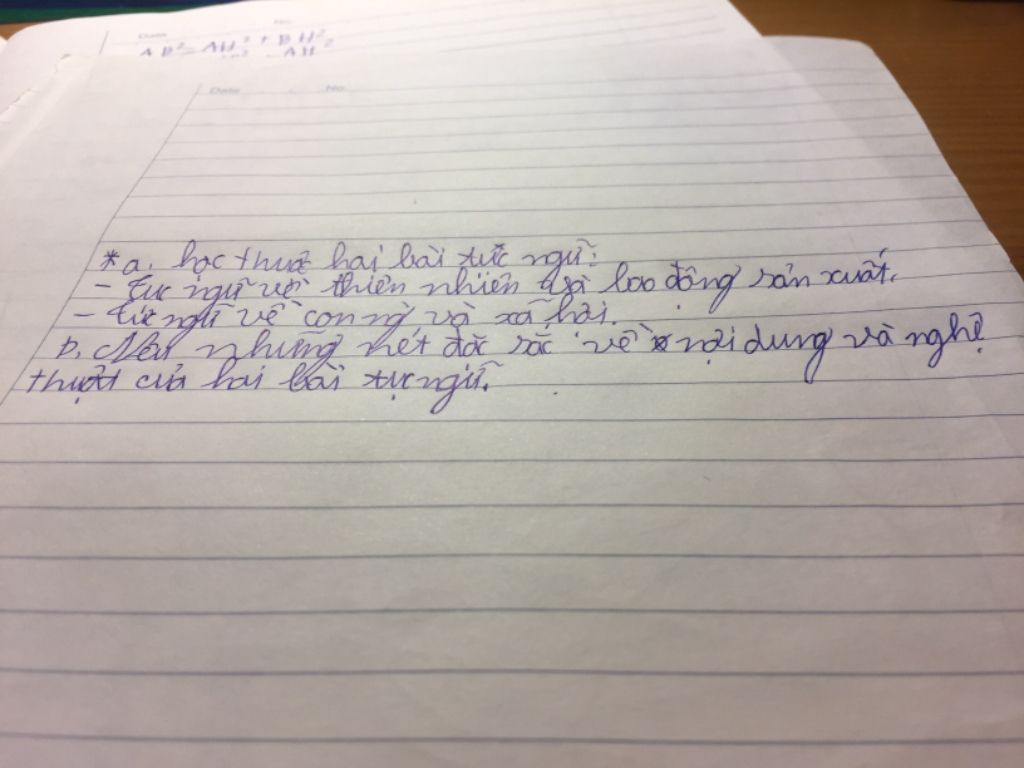 Date No.
AB² = AH² + BH²
AH²
Date No
* a. học thuộc hai bài tục ngữ:
- Tục ngữ về thiên nhiên và lao động sản xuất.
- Tục ngữ về con ng và xã hội.
b. Nêu những nét đặc sắc về nội dung và nghệ
thuật của hai bài tục ngữ.